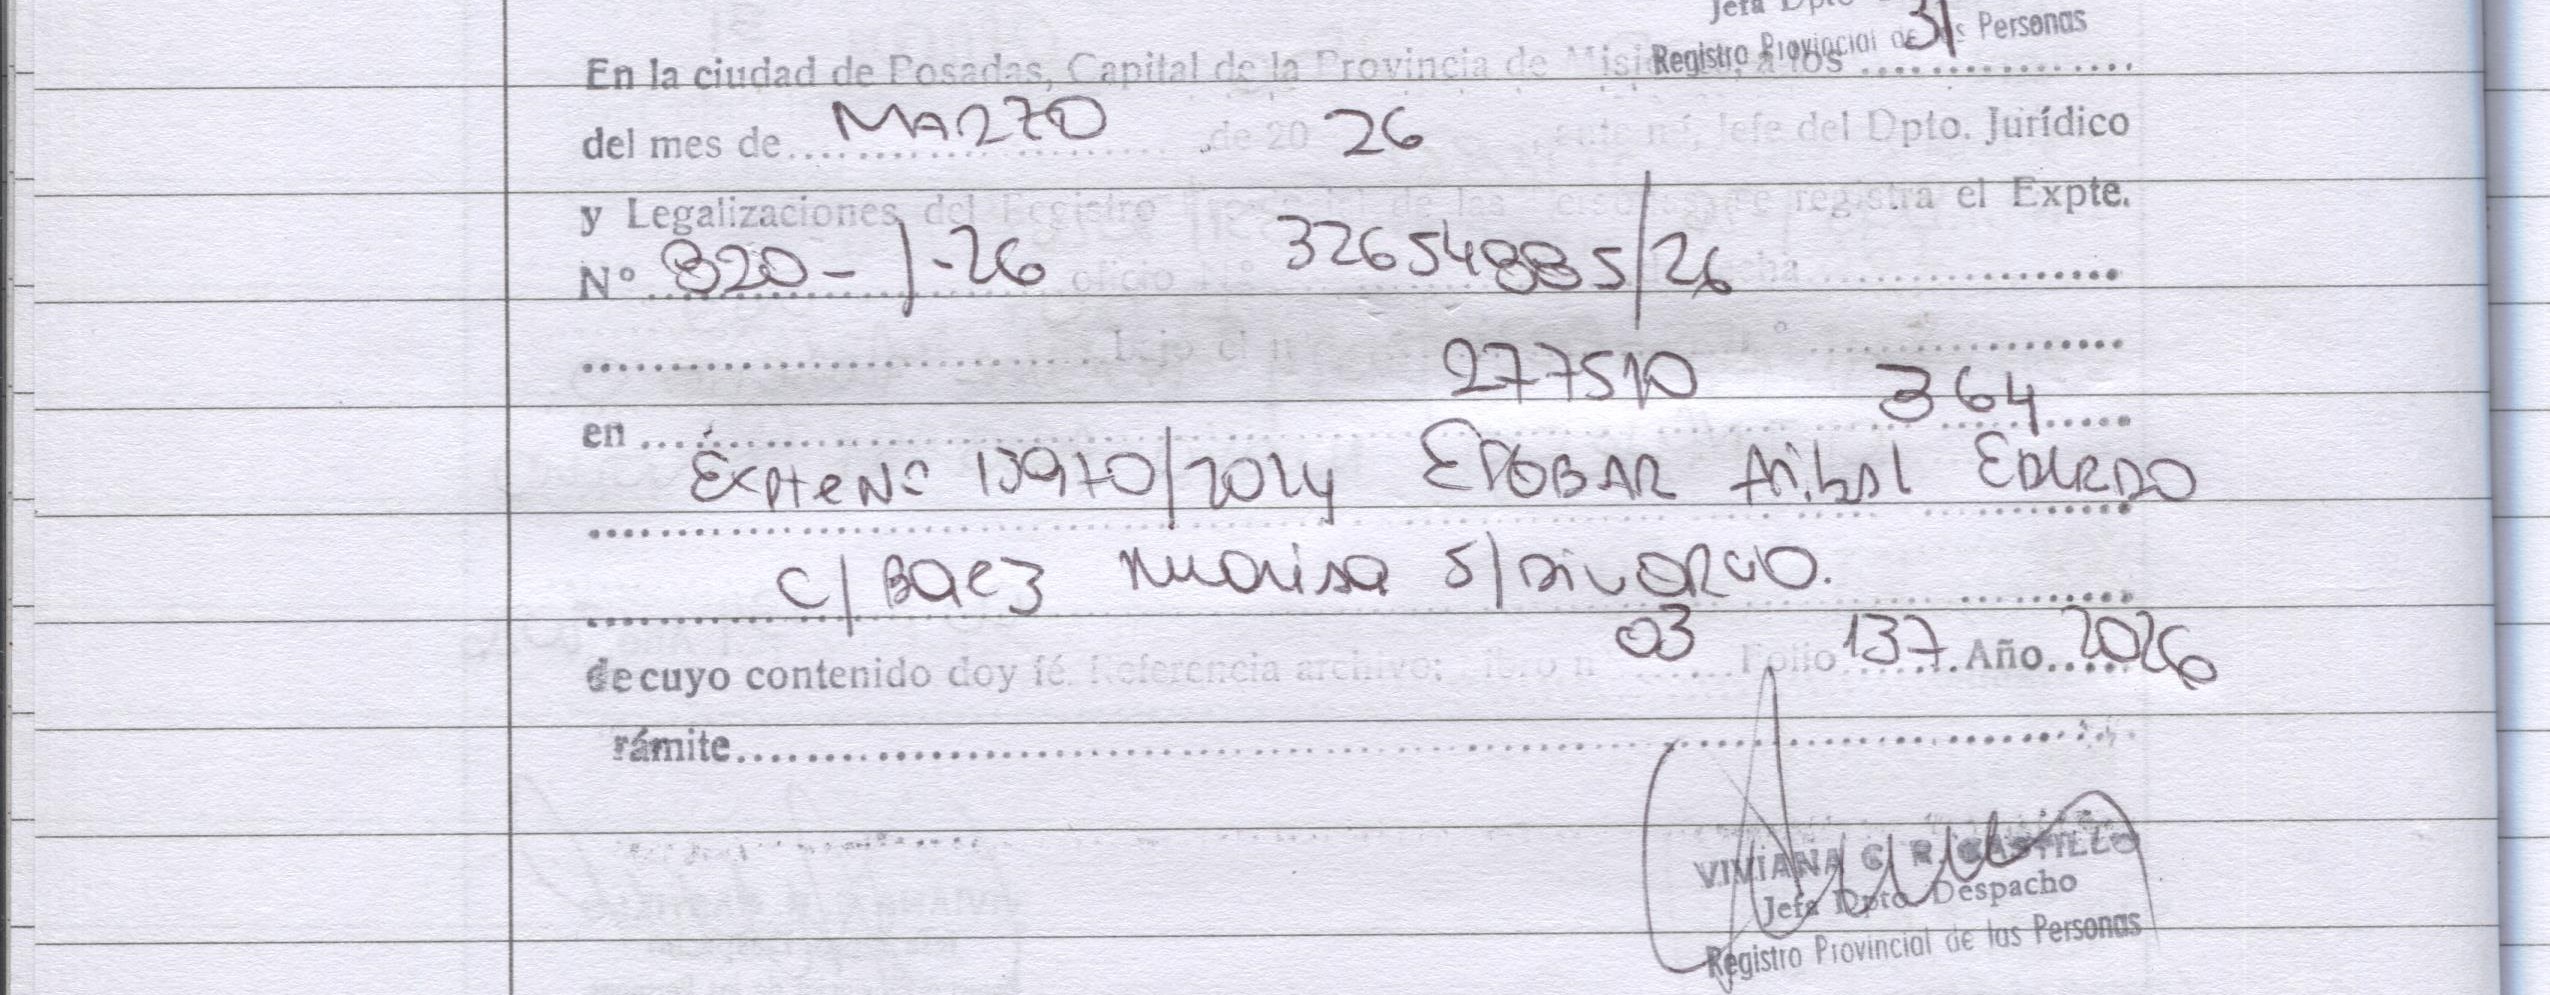 Jefa Dpto
Registro Provincial de las Personas
En la ciudad de Posadas, Capital de la Provincia de Misiones, a los 31
del mes de MARZO de 20 26, ante mí, Jefe del Dpto. Jurídico
y Legalizaciones del Registro de las registra el Expte.
Nº 820-J-26 oficio Nº 32654885/26
bajo el nº 277510 364
en
Expte Nº 15970/2024 Anibal
c/ Baez Marisa s/ DIVORCIO.
de cuyo contenido doy fé. Referencia archivo: libro n 03 Folio 137 Año 2026
rámite
VIVIANA C. R. CASTILLO
Jefa Dpto Despacho
Registro Provincial de las Personas